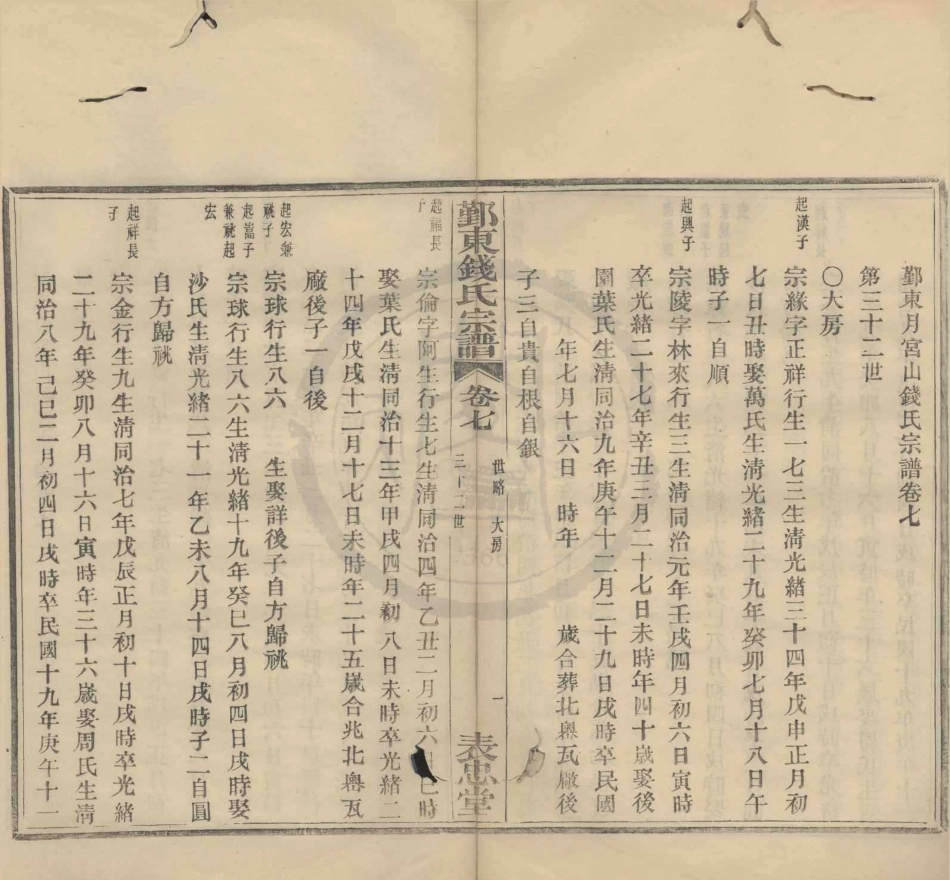 鄞東月宮山錢氏宗譜卷七
第三十二世
〇大房
起漢子
宗緣字正祥行生一七三生淸光緒三十四年戊申正月初
七日丑時娶萬氏生淸光緒二十九年癸卯七月十八日午
時子一自順
起興子
宗陵字林來行生三生淸同治元年壬戌四月初六日寅時
卒光緒二十七年辛丑三月二十七日未時年四十歲娶後
圍葉氏生淸同治九年庚午十二月二十九日戌時卒民國
年七月十六日 時年 歲合葬北礜瓦廠後
子三自貴自根自銀
鄞東錢氏宗譜 卷七
世略 大房
三十二世
一
表忠堂
起福長
宗倫字阿生行生七生淸同治四年乙丑二月初六 巳時
娶葉氏生淸同治十三年甲戌四月初八日未時卒光緒二
十四年戊戌十二月十七日未時年二十五歲合兆北礜瓦
廠後子一自後
起宏兼
祧子
宗球行生八六 生娶詳後子自方歸祧
起嵩子
兼祧起
宏
宗球行生八六生淸光緒十九年癸巳八月初四日戌時娶
沙氏生淸光緒二十一年乙未八月十四日戌時子二自圓
自方歸祧
起祥長
子
宗金行生九生淸同治七年戊辰正月初十日戌時卒光緒
二十九年癸卯八月十六日寅時年三十六歲娶周氏生淸
同治八年己巳二月初四日戌時卒民國十九年庚午十一